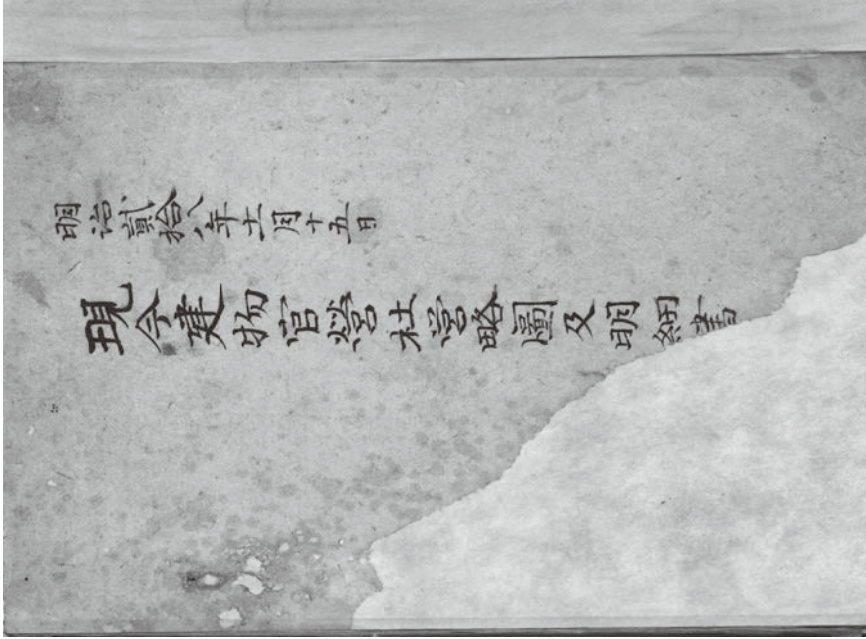 明治貳拾八年十一月十五日
現今建物官營社営略圖及明細書